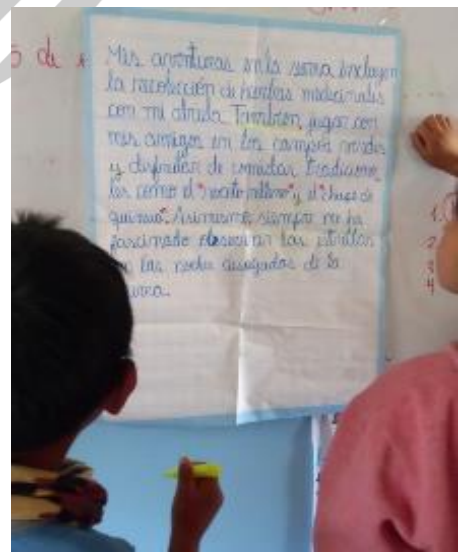 5 de
Mis aventuras en la sierra incluyen
la recolección de hierbas medicinales
con mi abuela. También, jugar con
mis amigos en los campos verdes
y disfrutar de comidas tradiciona
les como el "rocoto relleno" y el "chupe de
quinua". Asimismo, siempre me ha
fascinado observar las estrellas
en las noches despejadas de la
1.
2
3
4